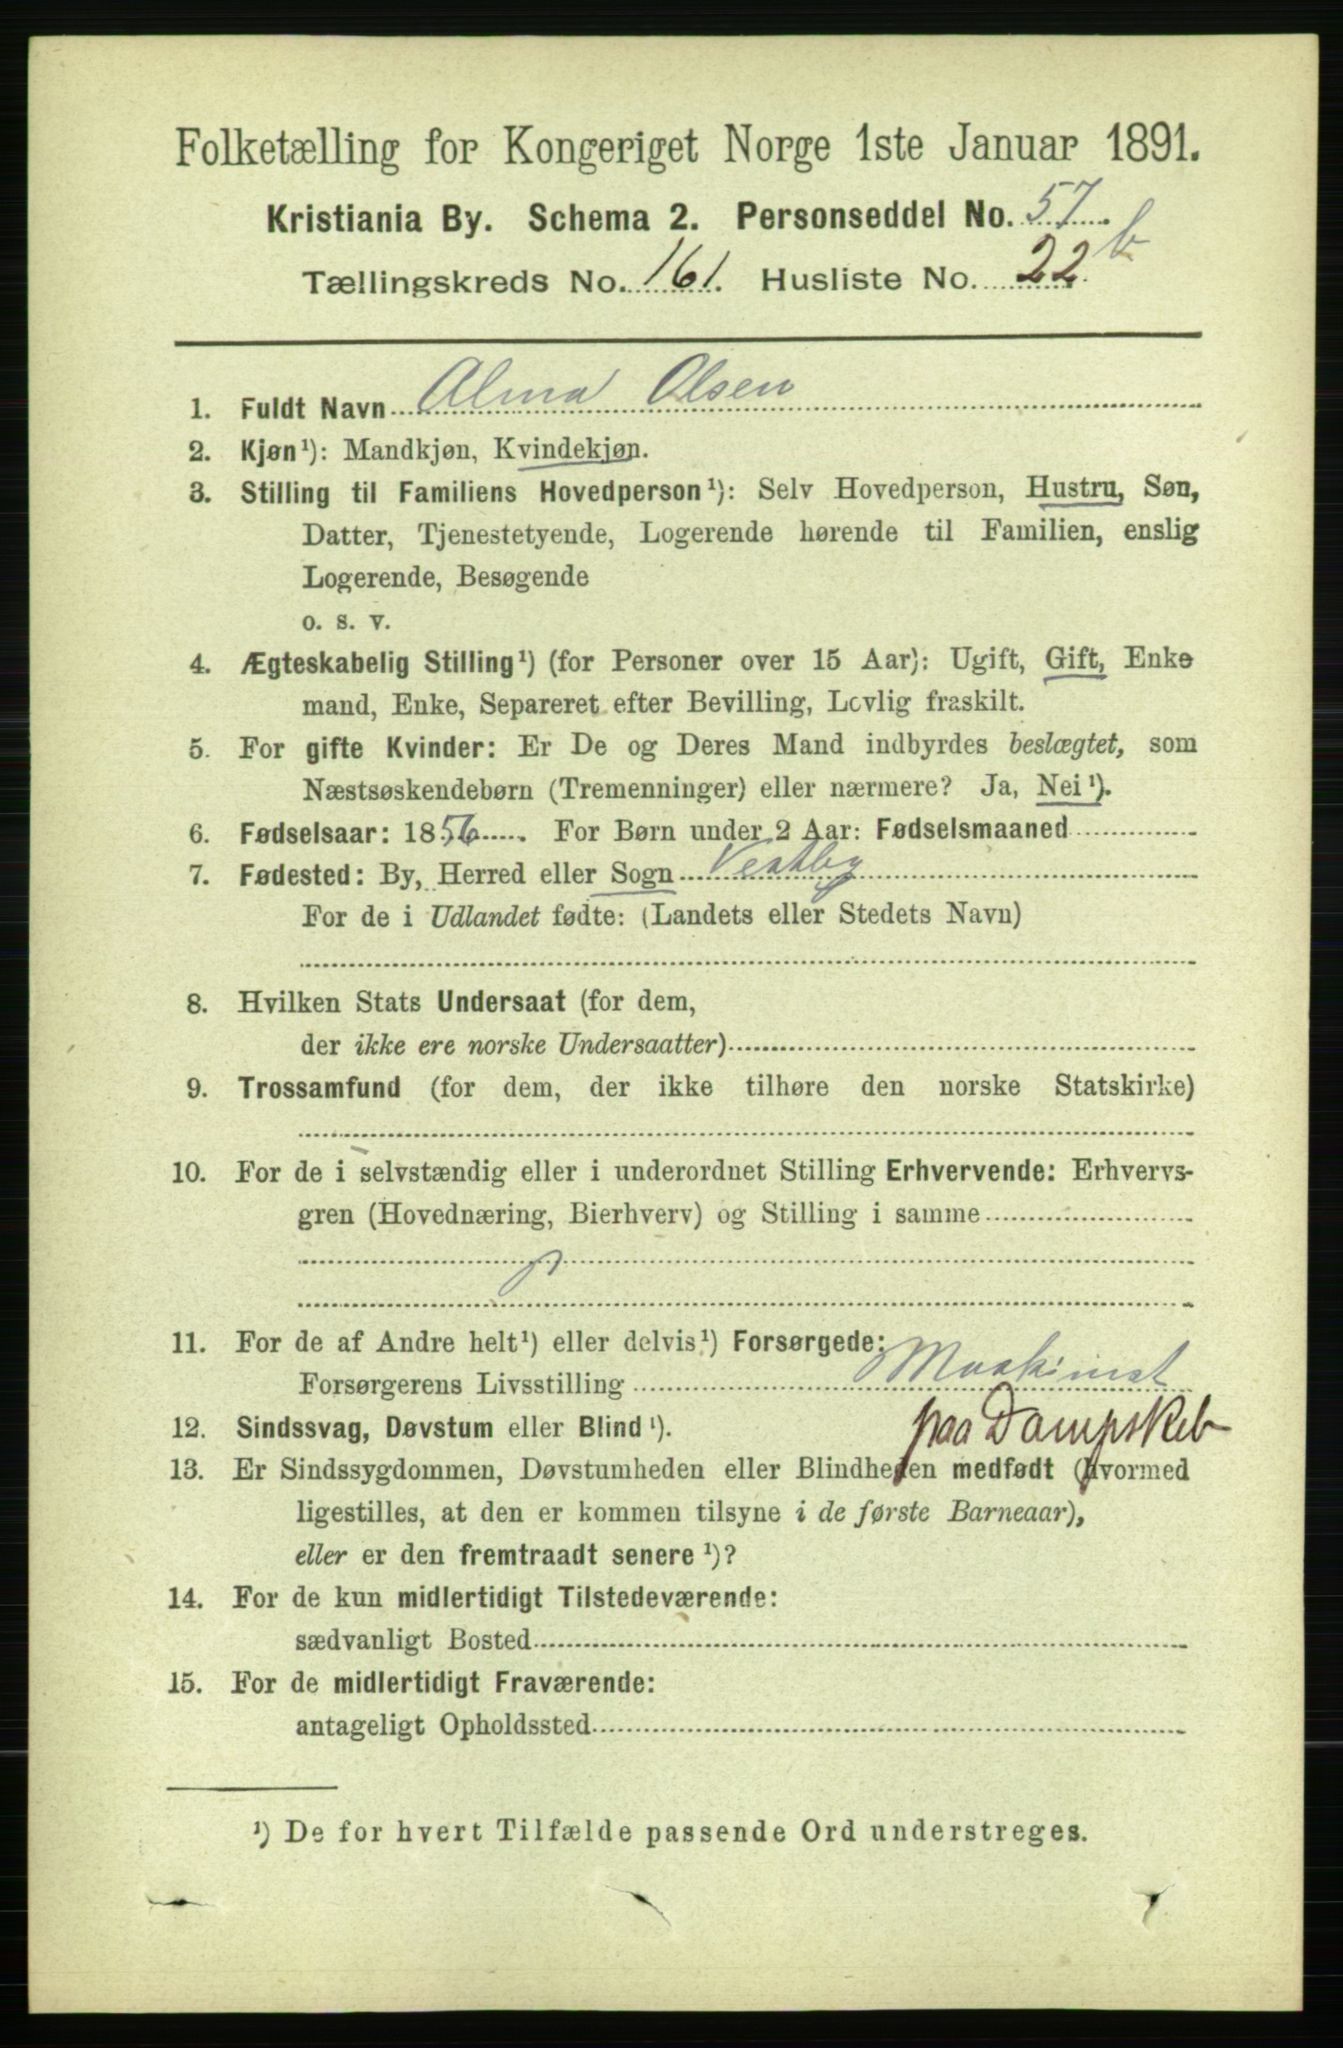 Folketælling for Kongeriget Norge 1ste Januar 1891.
Kristiania By. Schema 2. Personseddel No. 57.
Tællingskreds No. 161. Husliste No. 22 b
1. Fuldt Navn Alma Olsen
2. Kjøn¹): Mandkjøn, Kvindekjøn.
3. Stilling til Familiens Hovedperson¹): Selv Hovedperson, Hustru, Søn,
Datter, Tjenestetyende, Logerende hørende til Familien, enslig
Logerende, Besøgende
o. s. v.
4. Ægteskabelig Stilling¹) (for Personer over 15 Aar): Ugift, Gift, Enke
mand, Enke, Separeret efter Bevilling, Lovlig fraskilt.
5. For gifte Kvinder: Er De og Deres Mand indbyrdes beslægtet, som
Næstsøskendebørn (Tremenninger) eller nærmere? Ja, Nei¹).
6. Fødselsaar: 1856. For Børn under 2 Aar: Fødselsmaaned
7. Fødested: By, Herred eller Sogn Vestby
For de i Udlandet fødte: (Landets eller Stedets Navn)
8. Hvilken Stats Undersaat (for dem,
der ikke ere norske Undersaatter)
9. Trossamfund (for dem, der ikke tilhøre den norske Statskirke)
10. For de i selvstændig eller i underordnet Stilling Erhvervende: Erhvervs-
gren (Hovednæring, Bierhverv) og Stilling i samme
11. For de af Andre helt¹) eller delvis¹) Forsørgede:
Forsørgerens Livsstilling Maskinist
paa Dampskib
12. Sindssvag, Døvstum eller Blind¹).
13. Er Sindssygdommen, Døvstumheden eller Blindheden medfødt (hvormed
ligestilles, at den er kommen tilsyne i de første Barneaar),
eller er den fremtraadt senere¹)?
14. For de kun midlertidigt Tilstedeværende:
sædvanligt Bosted
15. For de midlertidigt Fraværende:
antageligt Opholdssted
¹) De for hvert Tilfælde passende Ord understreges.